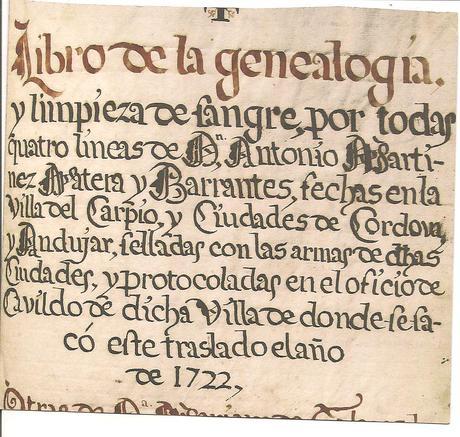 Libro de la genealogia.
y limpieza de sangre, por todas
quatro lineas de Dn. Antonio Marti-
nez Matera y Barrantes, fechas en la
Villa del Carpio, y Ciudades de Cordova,
y Andujar, selladas con las armas de dhas
Ciudades, y protocoladas en el oficio de
Cavildo de dicha Villa de donde se sa-
có este traslado el año
de 1722,
Otras de Da.